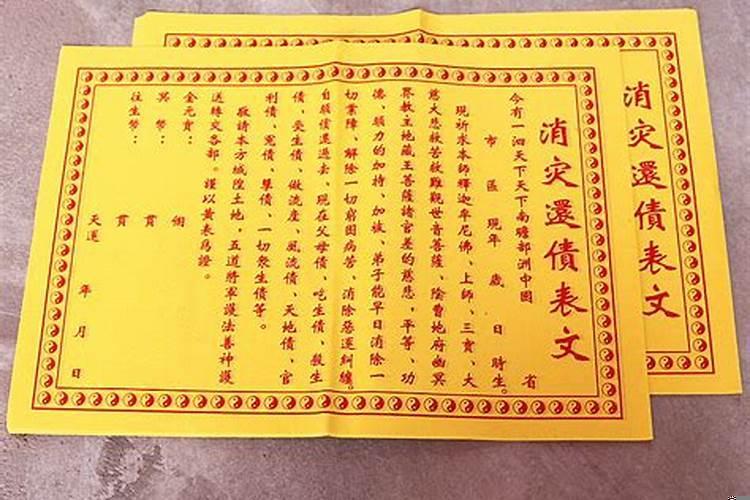 消灾還債表文
今有一泗天下天下南瞻部洲中國 省
市 區 現年 歲 日 時生。
現祈求本師釋迦牟尼佛、上師、三寶、大
慈大悲救苦救難觀世音菩薩、陰曹地府幽冥
界教主地藏王菩薩諸官差的慈悲，平等、功
德、願力的加持、加被、弟子能早日消除一
切業障、解除一切窮困病苦、消除惡運糾纏。
自願償還過去、現在父母債、吃生債、殺生
債、受生債、做流產、風流債、天地債、官
利債、冤債、孽債、一切衆生債等。
敬請本方城隍土地，五道將軍護法善神護
送轉交各部。謹以黄表爲證。
金元寶： 個
冥幣： 貫
往生幣： 貫
天運 年 月 日
消灾還債表文